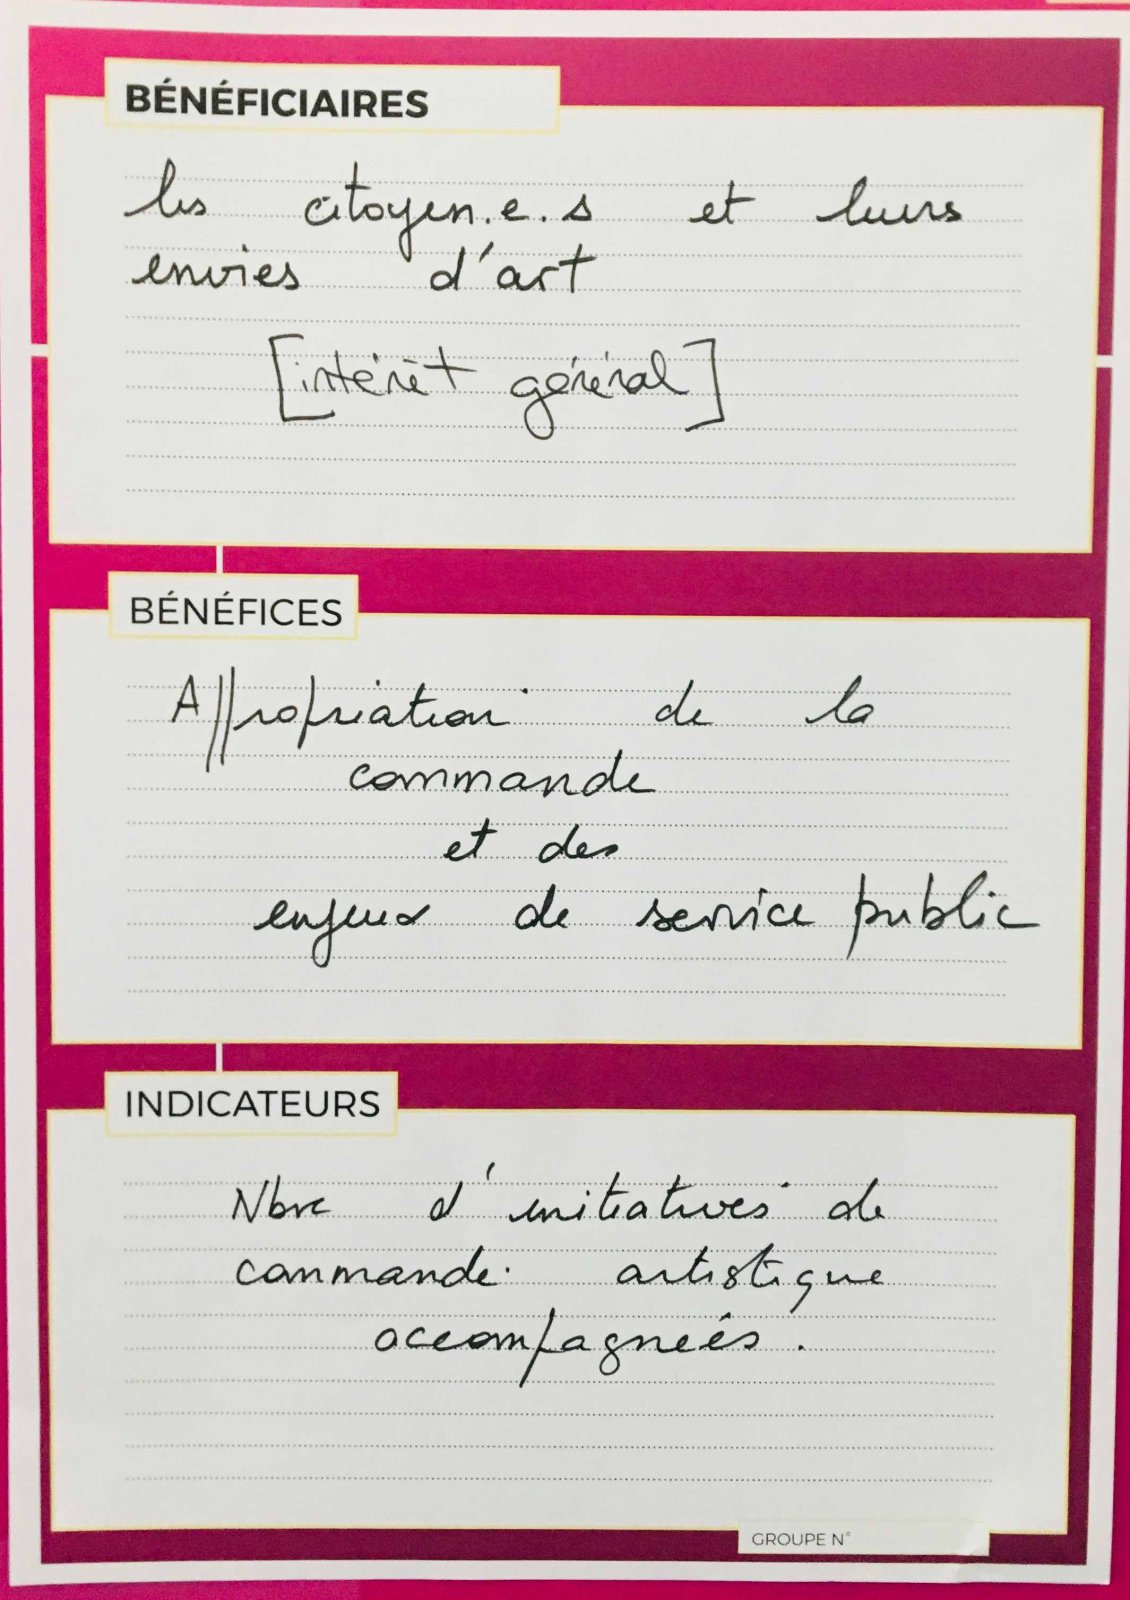 BÉNÉFICIAIRES
les citoyen.e.s et leurs
envies d'art
[intérêt général]
BÉNÉFICES
Appropriation de la
commande
et des
enjeux de service public
INDICATEURS
Nbre d'initiatives de
commande artistique
accompagnées.
GROUPE N°